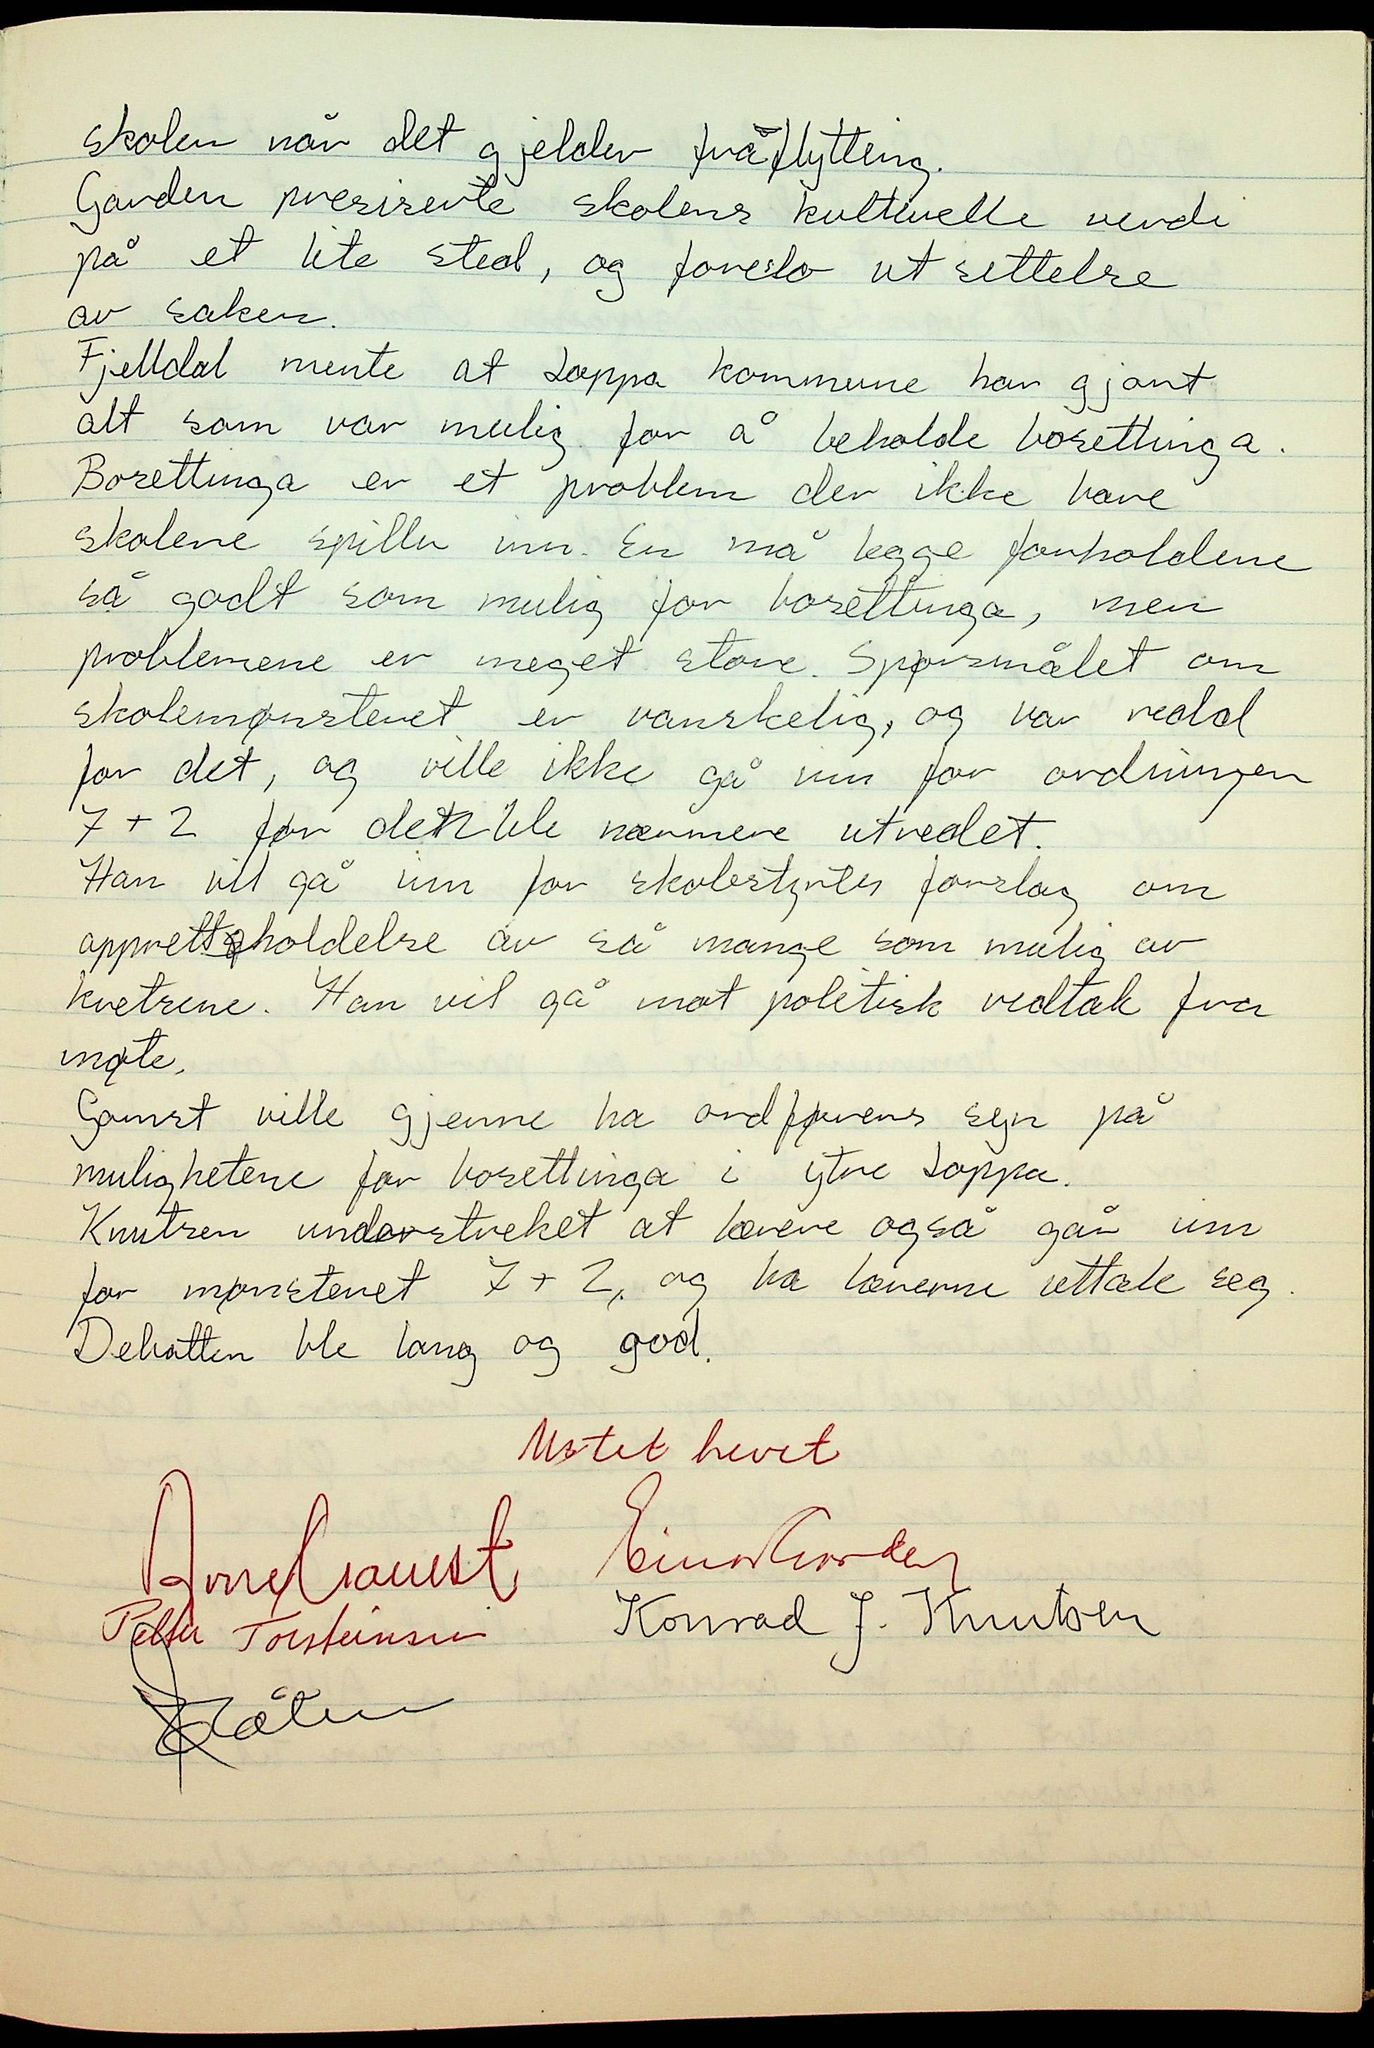 skolen når det gjelder fråflytting.
Garden presiserte skolens kulturelle verdi
på et lite sted, og foreslo utsettelse
av saken.
Fjelldal mente at Loppa kommune har gjort
alt som var mulig for å beholde bosettinga.
Bosettinga er et problem der ikke bare
skolene spiller inn. En må legge forholdene
så godt som mulig for bosettinga, men
problemene er meget store. Spørsmålet om
skolemønsteret er vanskelig, og var redd
for det, og ville ikke gå inn for ordningen
7 + 2 før det ble nærmere utredet.
Han vil gå inn for skolestyrtes forslag om
opprettholdelse av så mange som mulig av
kretsene. Han vil gå mot politisk vedtak fra
møte.
Gamst ville gjerne ha ordførerens syn på
mulighetene for bosettinga i ytre Loppa.
Knutsen understreket at lærere også går inn
for mønsteret 7 + 2, og ha lærerne uttale seg.
Debatten ble lang og god.
Møtet hevet
Arne Gamst Einar Garden
Petter Torsteinsen Konrad J. Knutsen